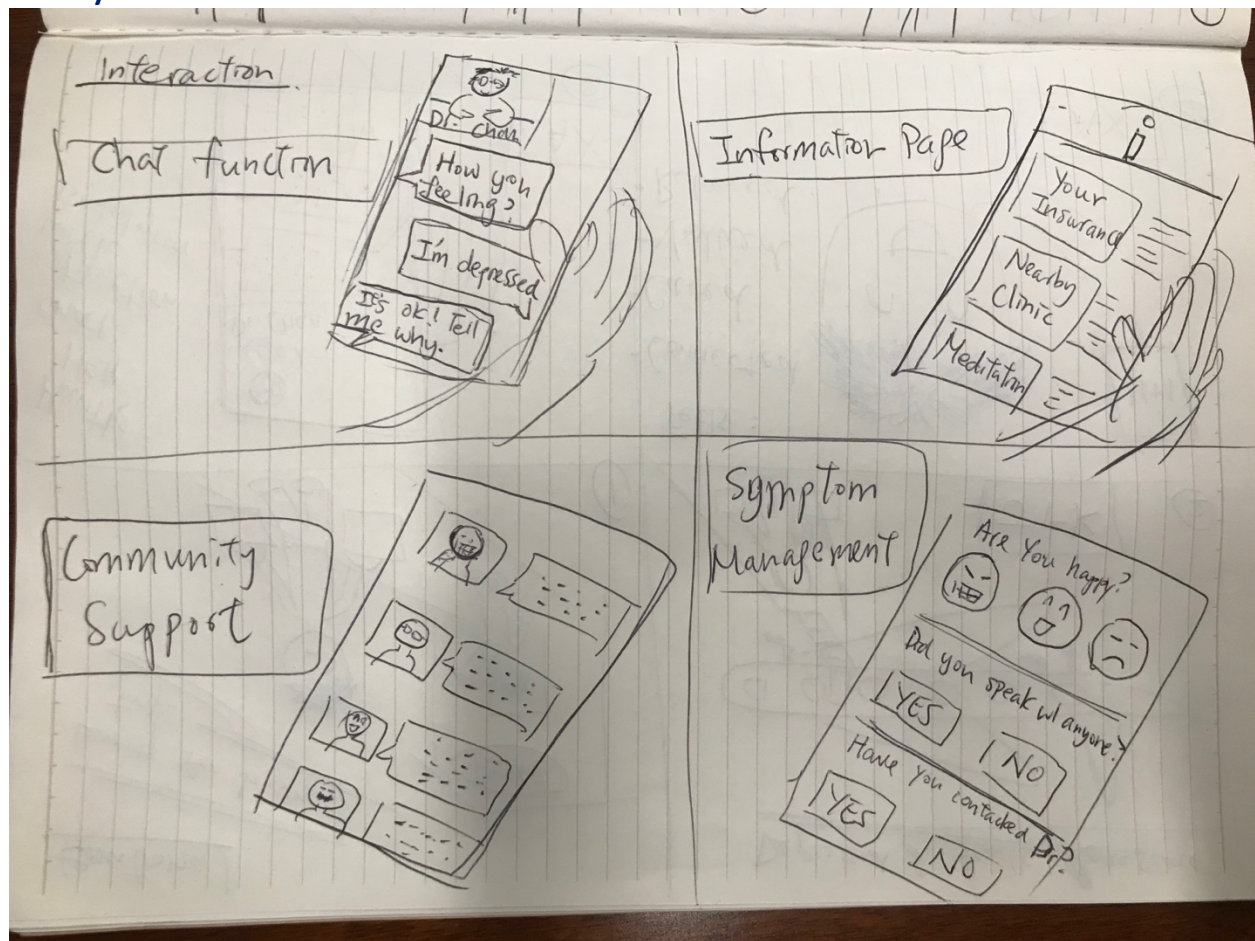 Interaction
Chat function
Dr. Chan
How you
feeling?
I'm depressed
It's ok! Tell
me why.
Information Page
i
Your
Insurance
Nearby
Clinic
Meditation
Community
Support
Symptom
Management
Are You happy?
Did you speak w/ anyone?
YES
NO
Have you contacted Dr?
YES
NO